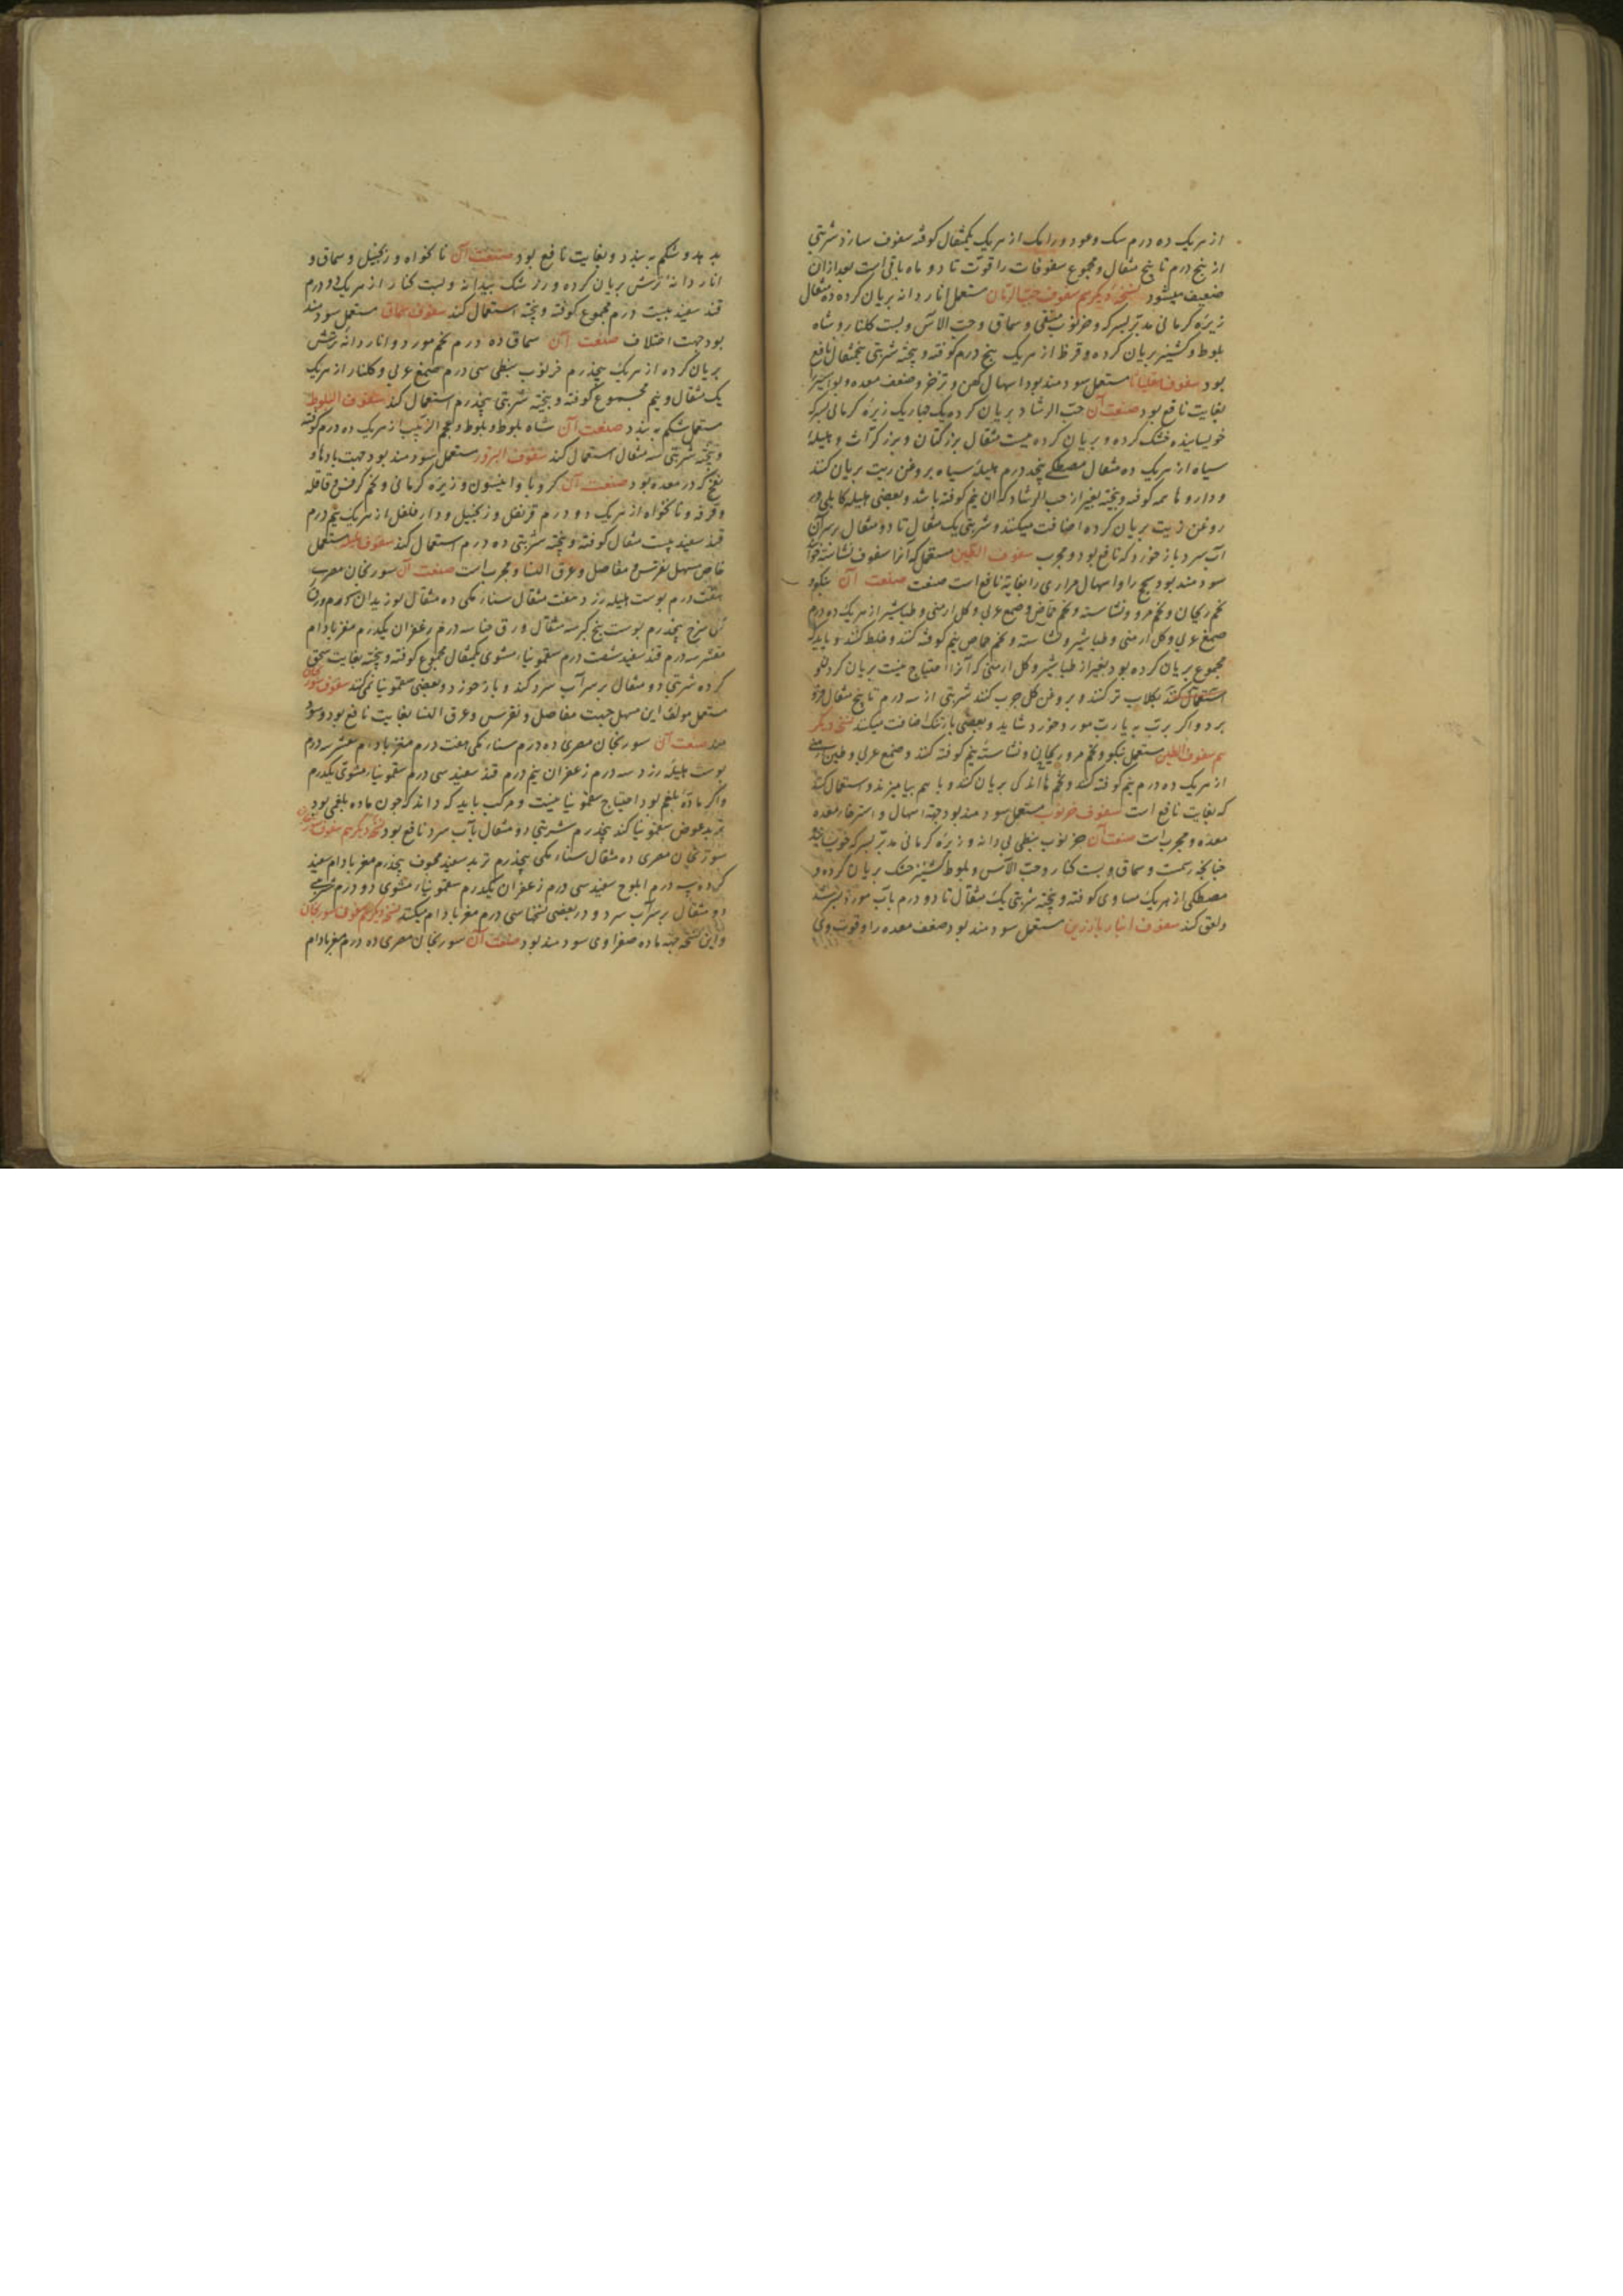 از هریک ده درم سک و عود و رامک از هریک یکمثقال کوفته سفوف سازد شربتی
از پنج درم تا پنج مثقال و مجموع سفوفات را قوت تا دو ماه باقی است بعد ازان
ضعیف میشود نسخهٔ دیکر هم سفوف حب الرمان مستعمل انار دانه بریان کرده ده مثقال
زیرهٔ کرمانی مدبر بسرکه و خرنوب منقی و سماق و حب الآس و بست کلنار و شاه
بلوط و کشنیز بریان کرده و قرظ از هریک پنج درم کوفته و بیخته شربتی پنجمثقال نافع
بود سفوف مقلیاثا مستعمل سودمند بود اسهال کهن و تزخر و ضعف معده و بواسیر را
بغایت نافع بود صنعت آن حب الرشاد بریان کرده یک چهاریک زیرهٔ کرمانی بسرکه
خویسانیده خشک کرده و بریان کرده بیست مثقال بزر کتان و بزر کراث و هلیلهٔ
سیاه از هریک ده مثقال مصطکی پنجدرم هلیلهٔ سیاه بروغن زیت بریان کنند
و داروها همه کوفته و بیخته بغیر از حب الرشاد که ان نیم کوفته باشد و بعضی هلیله کابلی در
روغن زیت بریان کرده اضافت میکنند و شربتی یک مثقال تا دو مثقال بر سر آن
آب سرد باز خورد که نافع بود و مجرب سفوف الطین مستعمل که آنرا سفوف نشاسته خوانند
سودمند بود سحج را و اسهال مراری را بغایة نافع است صنعت صنعت آن بنکو و
تخم ریحان و تخم مرو و نشاسته و تخم حماض و صمغ عربی و کل ارمنی و طباشیر از هریک ده درم
صمغ عربی و کل ارمنی و طباشیر و نشاسته و تخم حماض نیم کوفته کنند و خلط کنند و باید که
مجموع بریان کرده بود بغیر از طباشیر و کل ارمنی که آنرا احتیاج نیست بریان کردن و
استعمال کنند بکلاب تر کنند و بروغن کل چرب کنند شربتی از سه درم تا پنج مثقال فرو
برد و اکر برب به یا رب مورد خورد شاید و بعضی بارتنک اضافت میکنند نسخهٔ دیکر
هم سفوف الطین مستعمل بنکو و تخم مرو و ریحان و نشاسته نیم کوفته کنند و صمغ عربی و طین ارمنی
از هریک ده درم نیم کوفته کنند و تخم ها اندکی بریان کنند و با هم بیامیزند و استعمال کنند
که بغایت نافع است سفوف خرنوب مستعمل سودمند بود جهة اسهال و استرخاء معده
معده و مجرب است صنعت آن خرنوب نبطی بی دانه و زیرهٔ کرمانی مدبر بسرکه خویسانیده
چنانچه رسمست و سماق و بست کنار و حب الآس و بلوط کشنیز خشک بریان کرده و
مصطکی از هریک مساوی کوفته و بیخته شربتی یک مثقال تا دو درم بآب مورد
و لعق کند سفوف انار بازرین مستعمل سودمند بود ضعف معده را و قوت وی
بدهد و شکم به بندد و بغایت نافع بود صنعت آن نانخواه و زنجبیل و سماق و
انار دانهٔ ترش بریان کرده و زرشک بیدانه و بست کنار از هریک دو درم
قند سفید بیست درم مجموع کوفته و بیخته استعمال کنند سفوف سماق مستعمل سودمند
بود جهت اختلاف صنعت آن سماق ده درم تخم مورد و انار دانهٔ ترش
بریان کرده از هریک پنجدرم خرنوب نبطی سی درم صمغ عربی و کلنار از هریک
یک مثقال و نیم مجموع کوفته و بیخته شربتی پنجدرم استعمال کنند سفوف البلوط
مستعمل شکم به بندد صنعت آن شاه بلوط و بلوط و عجم الزبیب از هریک ده درم کوفته
و بیخته شربتی سه مثقال استعمال کنند سفوف البزور مستعمل سودمند بود جهت بادها و
نفخ که در معده بود صنعت آن کرویا و انیسون و زیرهٔ کرمانی و تخم کرفس و قاقله
و قرفه و نانخواه از هریک دو درم قرنفل و زنجبیل و دار فلفل از هریک نیم درم
قند سفید بیست مثقال کوفته و بیخته شربتی ده درم استعمال کنند سفوف مستعمل
خاص مسهل نقرس و مفاصل و عرق النسا و مجرب است صنعت آن سورنجان مصری
هفت درم پوست هلیله زرد هفت مثقال سناء مکی ده مثقال بوزیدان درم ورق
کل سرخ پنجدرم پوست بیخ کبر سه مثقال ورق حنا سه درم زعفران یکدرم مغز بادام
مقشر سه درم قند سفید شصت درم سقمونیاء مشوی یکمثقال مجموع کوفته و بیخته بغایت سحق
کرده شربتی دو مثقال بر سر آب سرد کند و باز خورد و بعضی سقمونیا نمی کنند سفوف سورنجان
مستعمل مولف این مسهل جهت مفاصل و نقرس و عرق النسا بغایت نافع بود و سود
مند صنعت آن سورنجان مصری ده درم سناء مکی هفت درم مغز بادام مقشر سه درم
پوست هلیله زرد سه درم زعفران نیم درم قند سفید سی درم سقمونیاء مشوی یکدرم
و اکر مادهٔ بلغم بود احتیاج سقمونیا نیست و مرکب باید که داند که چون ماده بلغمی بود
تربد عوض سقمونیا کند پنجدرم شربتی دو مثقال بآب سرد نافع بود نسخهٔ دیکر هم سفوف سورنجان
سورنجان مصری ده مثقال سناء مکی پنجدرم تربد سفید مجوف پنجدرم مغز بادام سفید
کرده سه درم ابلوج سفید سی درم زعفران یکدرم سقمونیاء مشوی دو درم شربتی
دو مثقال بر سر آب سرد و در بعضی نسخها سی درم مغز بادام میکنند نسخهٔ دیکر هم سفوف سورنجان
و این نسخه جهة ماده صفراوی سودمند بود صنعت آن سورنجان مصری ده درم مغز بادام